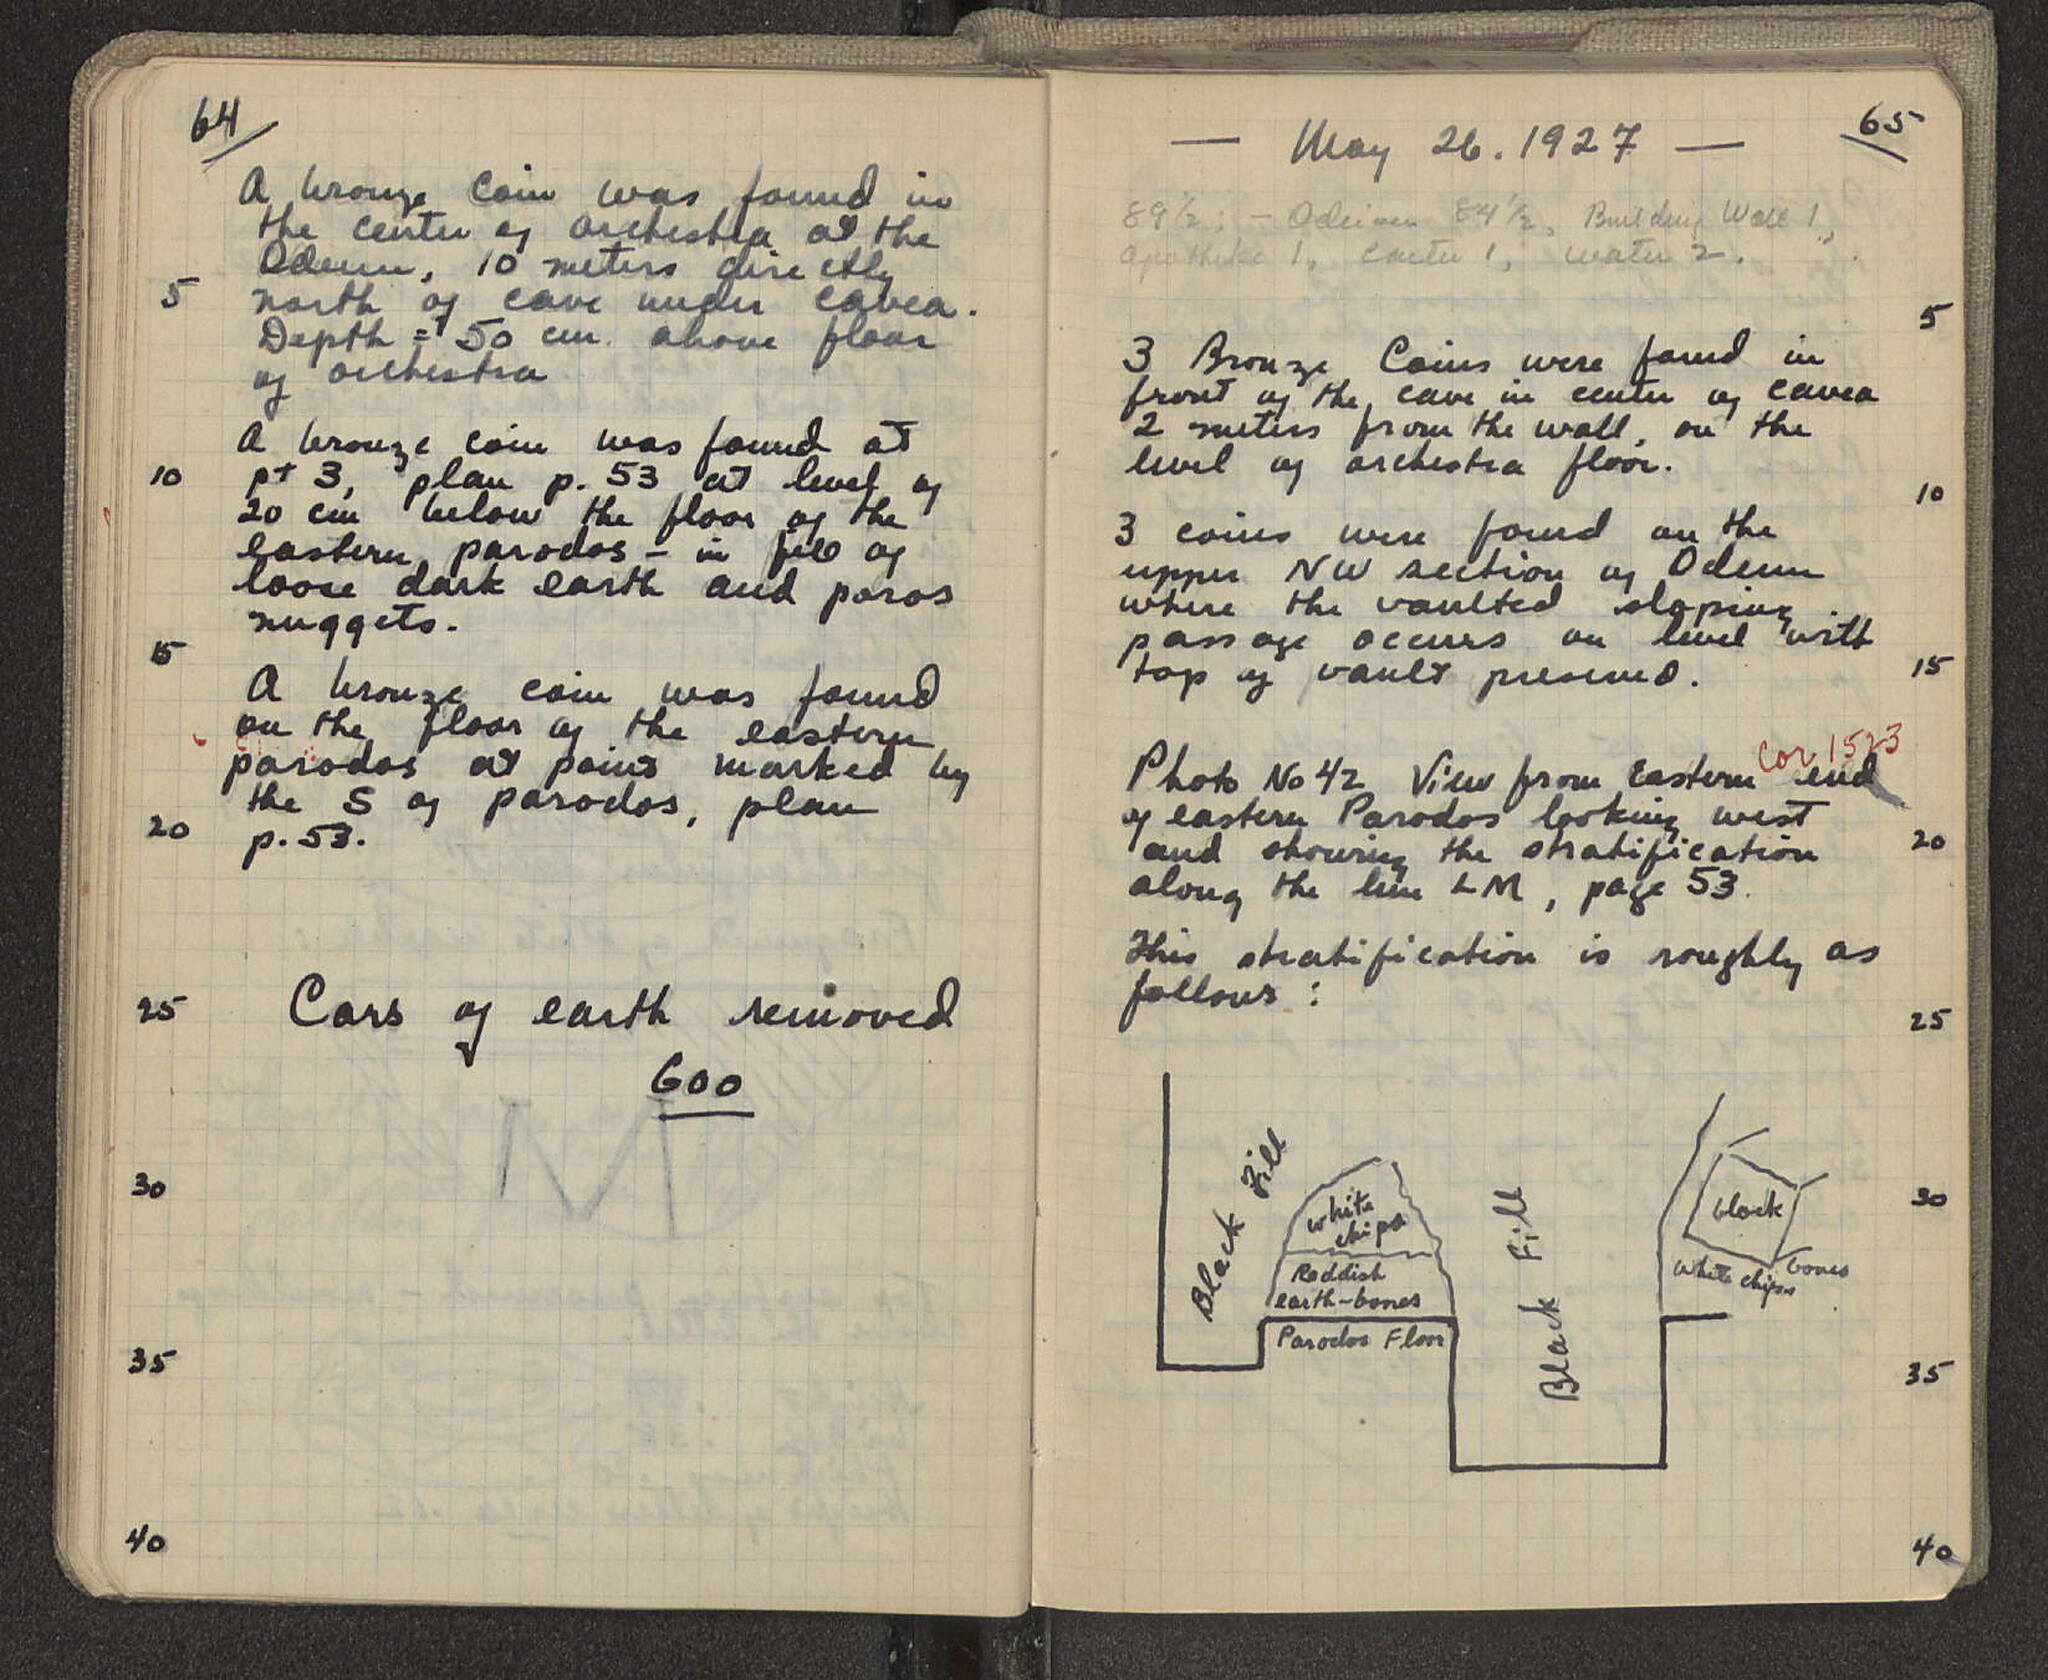 64
A bronze coin was found in
the center of orchestra at the
Odeum, 10 meters directly
5 north of cave under cavea.
Depth = ± 50 cm. above floor
of orchestra
A bronze coin was found at
10 pt 3, plan p. 53 at level of
20 cm below the floor of the
eastern parodos - in fill of
loose dark earth and poros
nuggets.
15
A bronze coin was found
on the floor of the eastern
parodos at point marked by
the S of parodos, plan
20 p. 53.
25 Cars of earth removed
600
30
35
40
65
— May 26. 1927 —
89 1/2; - Odeion 84 1/2, Building Wall 1,
apotheke 1, 1, water 2.
5
3 Bronze Coins were found in
front of the cave in center of cavea
2 meters from the wall, on the
level of orchestra floor.
10
3 coins were found on the
upper NW section of Odeum
where the vaulted sloping
passage occurs on level with
top of vault preserved. 15
Cor 1523
Photo No 42 View from Eastern end
of eastern Parodos looking west
and showing the stratification 20
along the line LM, page 53.
This stratification is roughly as
follows :
25
Black Fill
white
chips
Reddish
earth-bones
Parodos Floor
Black Fill
block
white chips
bones
30
35
40